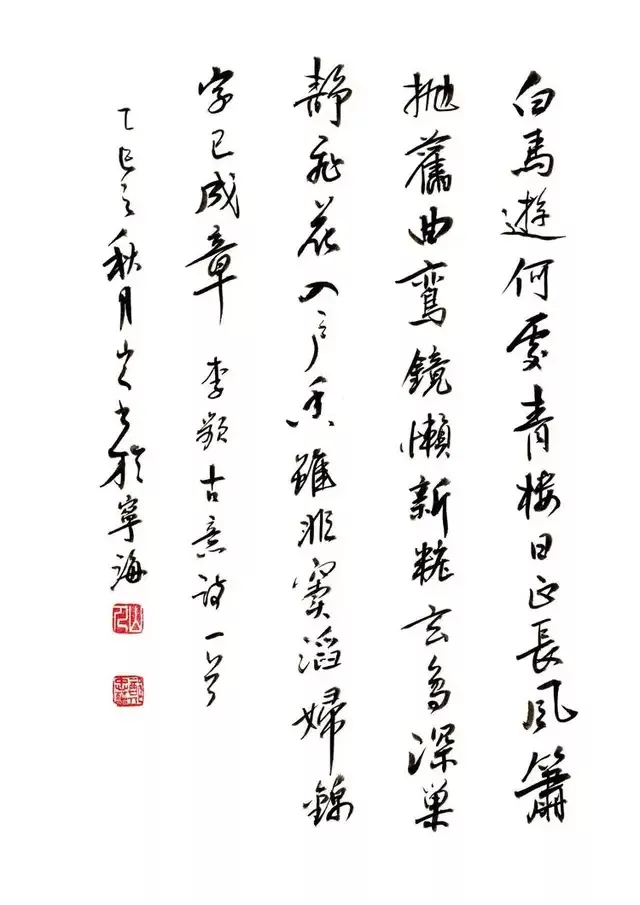 白馬遊何處青樓日正長鳳簫
抛舊曲鸞鏡懶新粧玄鳥深巢
靜飛花入戶香雖非竇滔婦錦
字已成章 李頻古意詩一首
乙巳之秋月出書於寧海